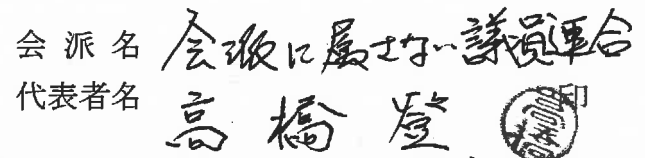 会派名 会派に属さない議員連合
代表者名 高橋登 印